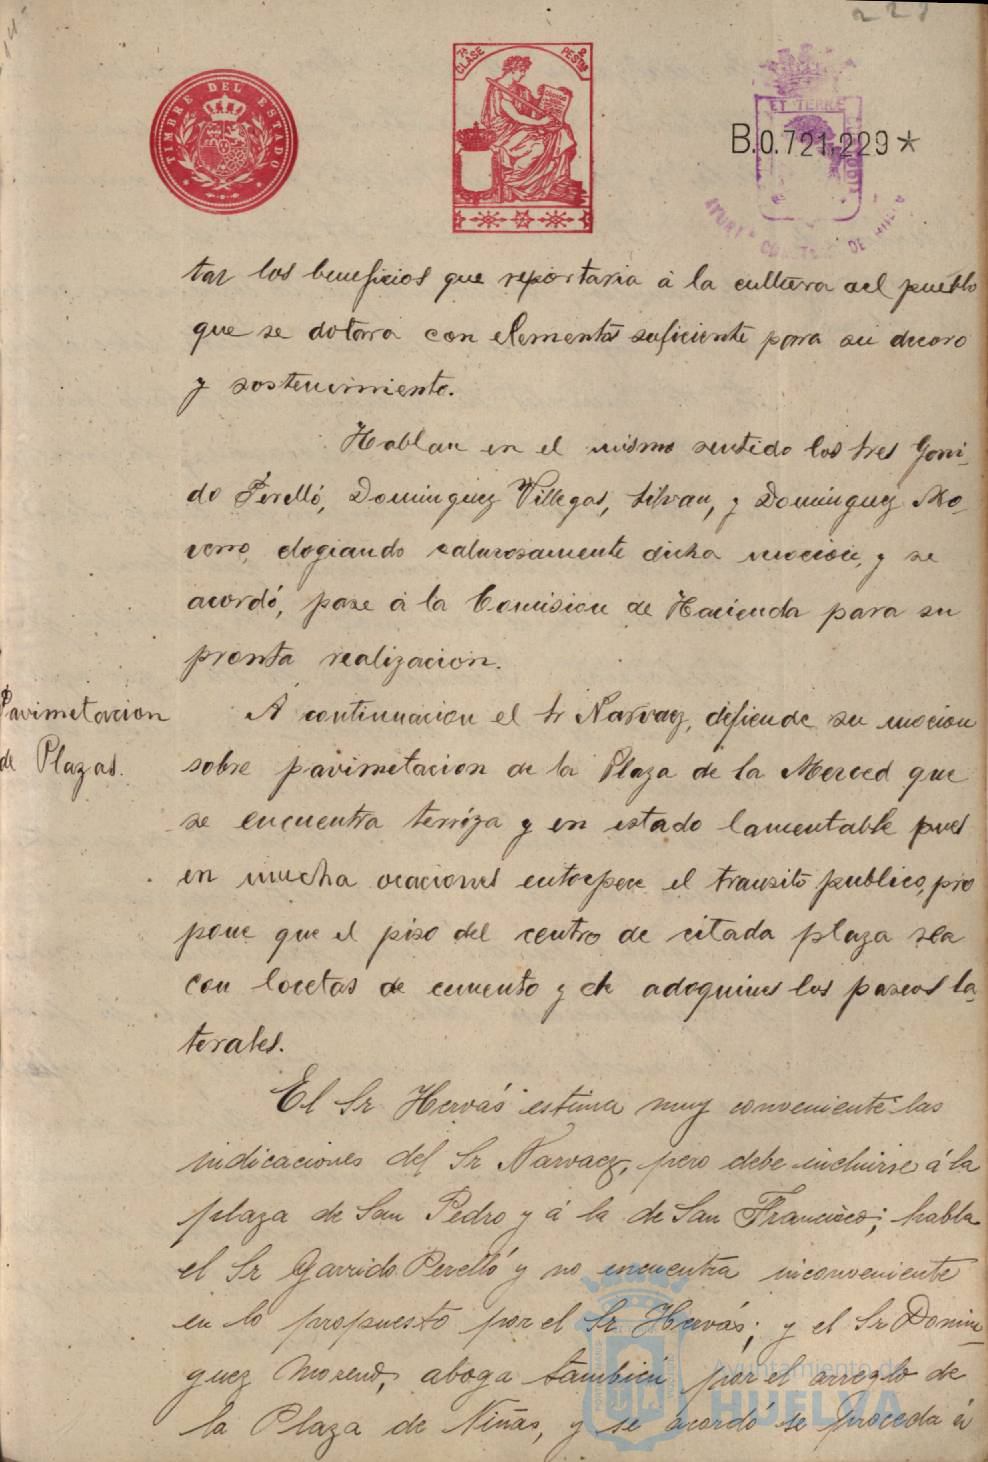 223
TIMBRE DEL ESTADO
7ª CLASE 2 PESTAS
ET TERRÆ
B.0.721,229*
tar los beneficios que reportaria á la cultura del pueblo
que se dotara con elementos suficiente para su decoro
y sostenimiento.
Hablan en el mismo sentido los tres Garri-
do Perelló, Dominguez Villegas, Silvan, y Dominguez Mo-
reno, elogiando calurosamente dicha mocion, y se
acordó, pase á la Comision de Hacienda para su
pronta realizacion.
Pavimetacion
de Plazas.
A continuacion el Sr Narvaez, defiende su mocion
sobre pavimetacion de la Plaza de la Merced que
se encuentra terriza y en estado lamentable pues
en mucha ocaciones entorpece el transito publico, pro
pone que el piso del centro de citada plaza sea
con locetas de cemento y de adoquines los paseos la-
terales.
El Sr Hervás estima muy conveniente las
indicaciones del Sr Narvaez, pero debe incluirse á la
plaza de San Pedro y á la de San Francisco; habla
el Sr Garrido Perelló y no encuentra inconveniente
en lo propuesto por el Sr Hervás; y el Sr Domin-
guez Moreno, aboga tambien por el arreglo de
la Plaza de Niñas, y se acordó se proceda á
Ayuntamiento de
HUELVA